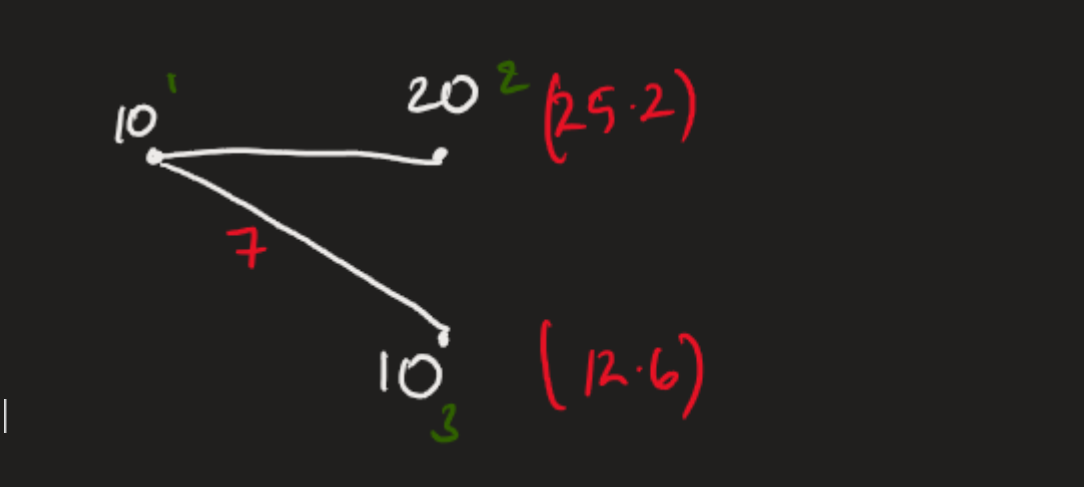 10 1 20 2 (25.2)
7
10 3 (12.6)